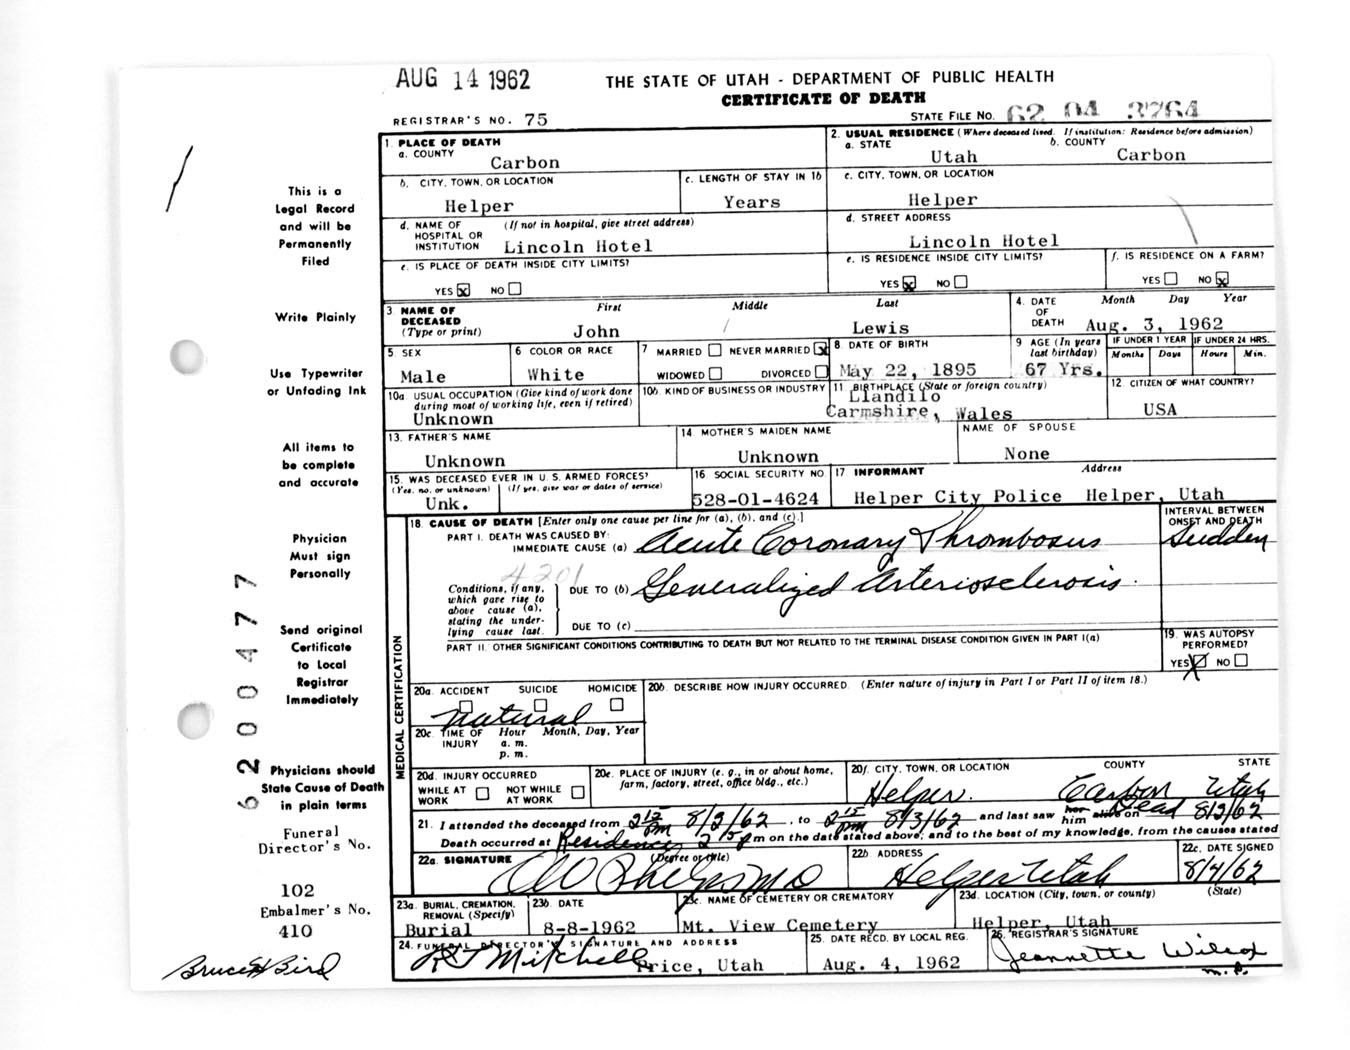 AUG 14 1962
THE STATE OF UTAH - DEPARTMENT OF PUBLIC HEALTH
CERTIFICATE OF DEATH
REGISTRAR'S NO. 75
STATE FILE NO. 62 04 3764
1. PLACE OF DEATH
a. COUNTY
Carbon
2. USUAL RESIDENCE (Where deceased lived. If institution: Residence before admission)
a. STATE
Utah
b. COUNTY
Carbon
b. CITY, TOWN, OR LOCATION
Helper
c. LENGTH OF STAY IN 1b
Years
c. CITY, TOWN, OR LOCATION
Helper
d. NAME OF HOSPITAL OR INSTITUTION
(If not in hospital, give street address)
Lincoln Hotel
d. STREET ADDRESS
Lincoln Hotel
e. IS PLACE OF DEATH INSIDE CITY LIMITS?
YES x NO
e. IS RESIDENCE INSIDE CITY LIMITS?
YES x NO
f. IS RESIDENCE ON A FARM?
YES NO x
3. NAME OF DECEASED
(Type or print)
First Middle Last
John Lewis
4. DATE OF DEATH
Month Day Year
Aug. 3, 1962
5. SEX
Male
6 COLOR OR RACE
White
7 MARRIED NEVER MARRIED x
WIDOWED DIVORCED
8 DATE OF BIRTH
May 22, 1895
9 AGE (In years last birthday)
67 Yrs.
IF UNDER 1 YEAR
Months Days
IF UNDER 24 HRS.
Hours Min.
10a. USUAL OCCUPATION (Give kind of work done during most of working life, even if retired)
Unknown
10b. KIND OF BUSINESS OR INDUSTRY
11. BIRTHPLACE (State or foreign country)
Llandilo
Carmshire, Wales
12. CITIZEN OF WHAT COUNTRY?
USA
13. FATHER'S NAME
Unknown
14. MOTHER'S MAIDEN NAME
Unknown
NAME OF SPOUSE
None
15. WAS DECEASED EVER IN U. S. ARMED FORCES?
(Yes, no, or unknown) (If yes, give war or dates of service)
Unk.
16. SOCIAL SECURITY NO.
528-01-4624
17 INFORMANT Address
Helper City Police Helper, Utah
MEDICAL CERTIFICATION
18. CAUSE OF DEATH [Enter only one cause per line for (a), (b), and (c).]
PART I. DEATH WAS CAUSED BY:
IMMEDIATE CAUSE (a) Acute Coronary Thrombosus
INTERVAL BETWEEN ONSET AND DEATH
Sudden
4201
Conditions, if any, which gave rise to above cause (a), stating the underlying cause last.
DUE TO (b) Generalized Arteriosclerosis.
DUE TO (c)
PART II. OTHER SIGNIFICANT CONDITIONS CONTRIBUTING TO DEATH BUT NOT RELATED TO THE TERMINAL DISEASE CONDITION GIVEN IN PART I(a)
19. WAS AUTOPSY PERFORMED?
YES X NO
20a. ACCIDENT SUICIDE HOMICIDE
Natural
20b. DESCRIBE HOW INJURY OCCURRED. (Enter nature of injury in Part I or Part II of item 18.)
20c. TIME OF INJURY
Hour Month, Day, Year
a. m.
p. m.
20d. INJURY OCCURRED
WHILE AT WORK NOT WHILE AT WORK
20e. PLACE OF INJURY (e. g., in or about home, farm, factory, street, office bldg., etc.)
20f. CITY, TOWN, OR LOCATION COUNTY STATE
Helper. Carbon Utah
21. I attended the deceased from 2 15 pm 8/3/62, to 2 15 pm 8/3/62 and last saw her him alive on Dead 8/3/62
Death occurred at Residence 2 15 p m on the date stated above; and to the best of my knowledge, from the causes stated
22a. SIGNATURE (Degree or title)
Phelps MD
22b. ADDRESS
Helper Utah
22c. DATE SIGNED
8/4/62
23a. BURIAL, CREMATION, REMOVAL (Specify)
Burial
23b. DATE
8-8-1962
23c. NAME OF CEMETERY OR CREMATORY
Mt. View Cemetery
23d. LOCATION (City, town, or county) (State)
Helper, Utah
24. FUNERAL DIRECTOR'S SIGNATURE AND ADDRESS
Mitchell Price, Utah
25. DATE RECD. BY LOCAL REG.
Aug. 4, 1962
26. REGISTRAR'S SIGNATURE
Jeannette Wilcox
This is a
Legal Record
and will be
Permanently
Filed
Write Plainly
Use Typewriter
or Unfading Ink
All items to
be complete
and accurate
Physician
Must sign
Personally
Send original
Certificate
to Local
Registrar
Immediately
Physicians should
State Cause of Death
in plain terms
Funeral
Director's No.
102
Embalmer's No.
410
Bruce H Bird
6200477